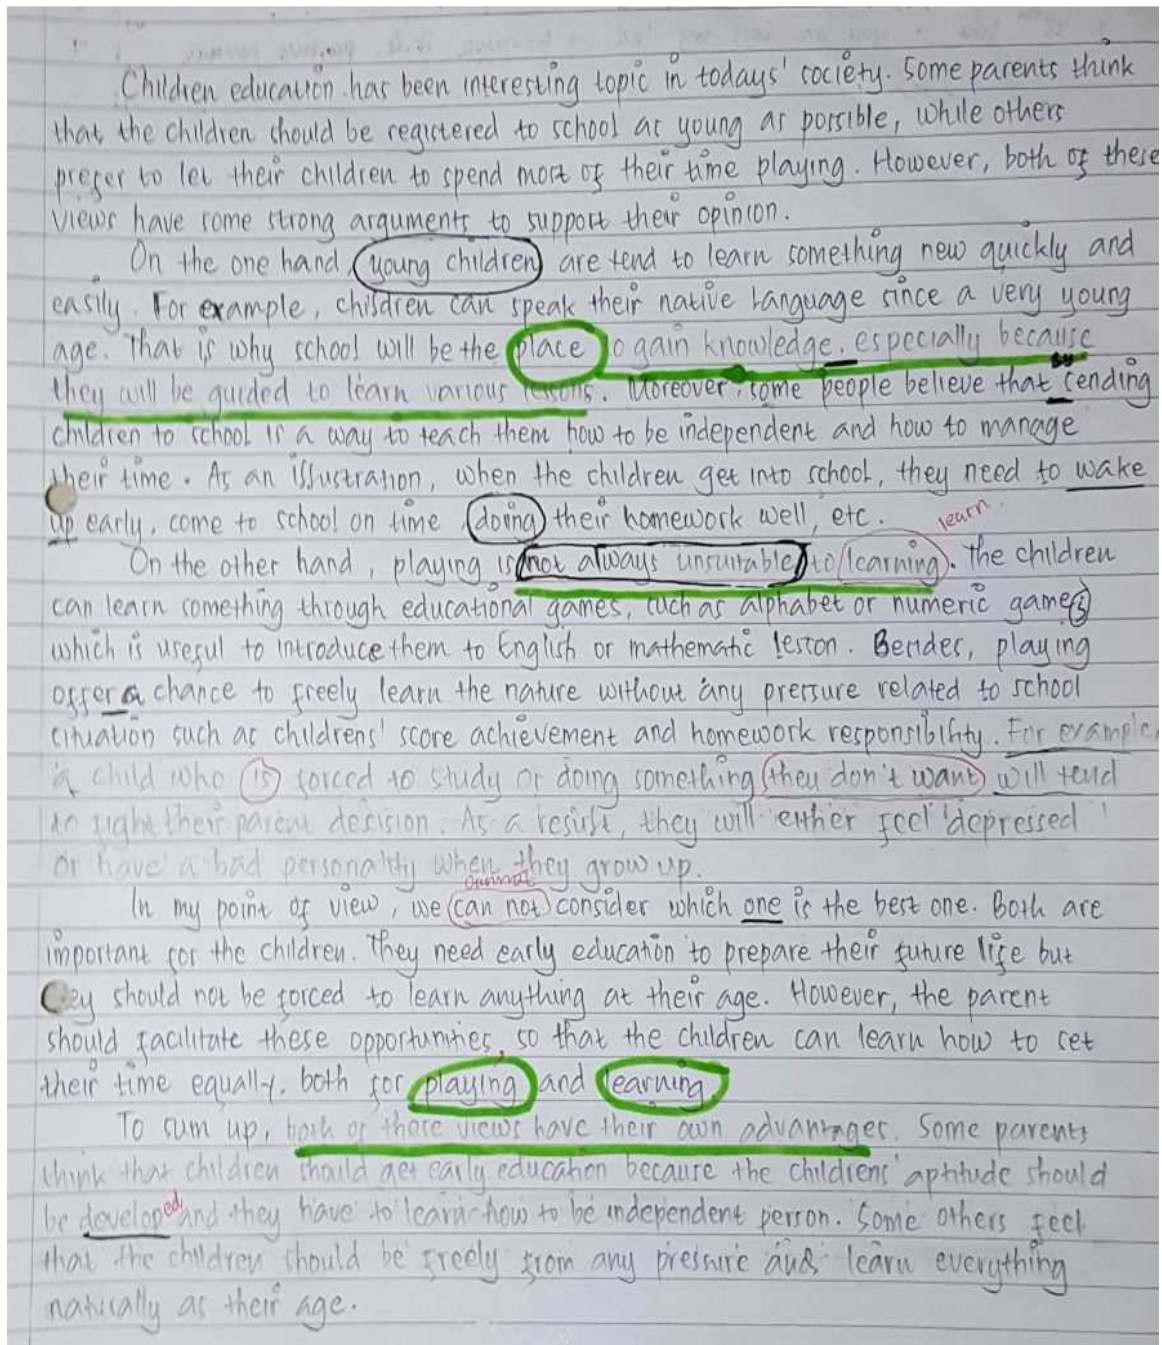 Children education has been interesting topic in todays' society. Some parents think
that the children should be registered to school as young as possible, while others
prefer to let their children to spend most of their time playing. However, both of these
views have some strong arguments to support their opinion.
On the one hand, young children are tend to learn something new quickly and
easily. For example, children can speak their native language since a very young
age. That is why school will be the place to gain knowledge, especially because
they will be guided to learn various lessons. Moreover, some people believe that sending
children to school is a way to teach them how to be independent and how to manage
their time. As an illustration, when the children get into school, they need to wake
up early, come to school on time, doing their homework well, etc.
learn
On the other hand, playing is not always unsuitable to learning. The children
can learn something through educational games, such as alphabet or numeric games
which is useful to introduce them to English or mathematic lesson. Besides, playing
offer a chance to freely learn the nature without any pressure related to school
situation such as childrens' score achievement and homework responsibility. For example,
a child who is forced to study or doing something they don't want will tend
to fight their parent decision. As a result, they will either feel depressed
or have a bad personality when they grow up.
cannot
In my point of view, we can not consider which one is the best one. Both are
important for the children. They need early education to prepare their future life but
ey should not be forced to learn anything at their age. However, the parent
should facilitate these opportunities, so that the children can learn how to set
their time equally, both for playing and learning.
To sum up, both of those views have their own advantages. Some parents
think that children should get early education because the childrens' aptitude should
be developed and they have to learn how to be independent person. Some others feel
that the children should be freely from any pressure and learn everything
naturally as their age.